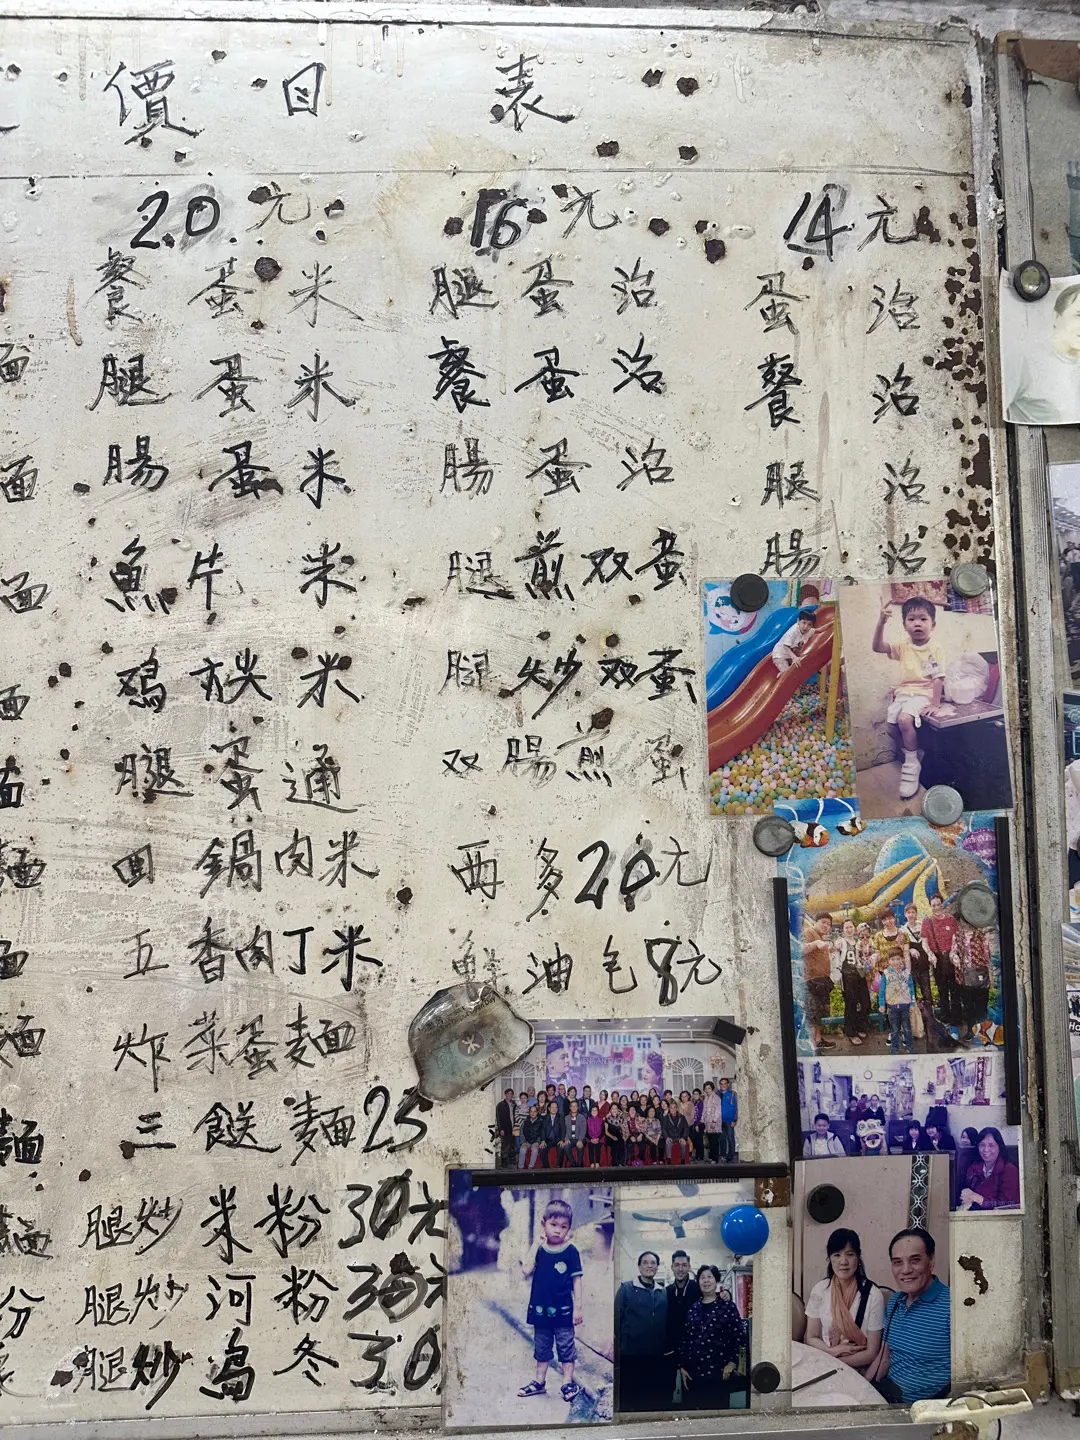 價目表
20元
餐蛋米
腿蛋米
腸蛋米
魚片米
鷄扒米
腿蛋通
回鍋肉米
五香肉丁米
炸菜蛋麵
三餸麵25
腿炒米粉30元
腿炒河粉30元
腿炒烏冬30
16元
腿蛋治
餐蛋治
腸蛋治
腿煎双蛋
腿炒双蛋
双腸煎蛋
西多20元
鮮油包8元
14元
蛋治
餐治
腿治
腸治
面
面
面
面
面
麵
面
麵
麵
麵
分